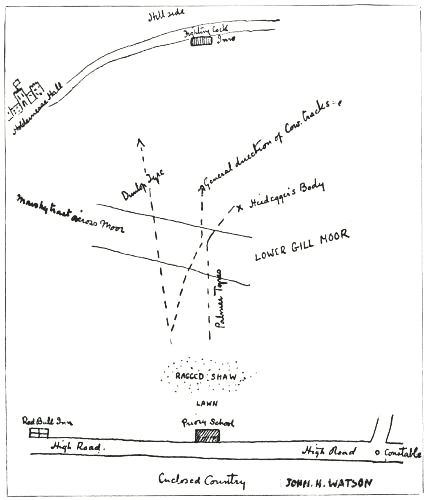 Hill side
Fighting Cock
Inn
Holdernesse Hall
General direction of Cow. tracks
Dunlop Tyre
Heidegger's Body
Marshy tract across
Moor
LOWER GILL MOOR
Palmer Tyres
RAGGED SHAW
LAWN
Red Bull Inn
Priory School
High Road.
High Road
Constable
Enclosed Country
JOHN. H. WATSON